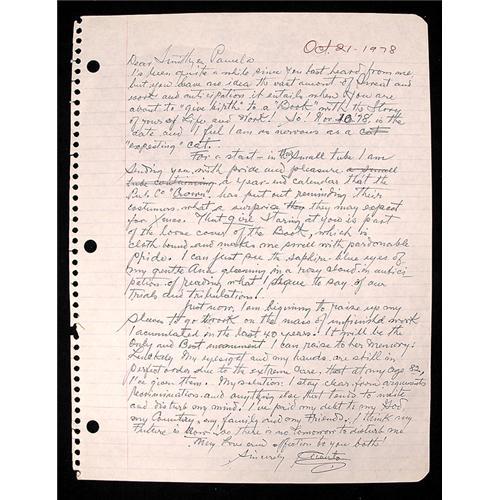 Oct 21-1978
Dear Timothy & Pamela
I've been quite a while since you last heard from me
but you have no idea the vast amount of
work and anticipation it entails when you are
about to "give birth" to a "Book" with the Story
of yours of Life and Work! So! Nov 10 78 is the
date and I feel I am as nervous as a cat
"expecting" cat.
For a start - in the small tube I am
sending you, with pride and pleasure, a small
tube containing a year-end calendar that the
Pub. Co "Crown" has put out reminding their
customers what a surprise they may expect
for Xmas. That girl staring at you is part
of the loose cover of the Book, which is
cloth bound and makes me swell with pardonable
pride. I can just see the saphire blue eyes of
my gentle Ann gleaming in a rosy cloud in antici
pation of reading what I have to say of our
trials and tribulations.
Just now, I am beginning to raise up my
sleeves to go to work on the mass of unfinished work
I acumulated in the last 40 years. It will be the
only and Best monument I can raise to her memory.
Luckily My eyesight and my hands are still in
perfect order due to the extreme care, that at my age 82,
I've given them. My solution: I stay clear from arguments
recrimination and anything else that tends to
and disturb my mind. I've paid my debt to my God,
my Country, my family and my friends. I think my
future is Now. So there is no tomorrow to disturb me.
May Love and affection be you both!
Sincerely